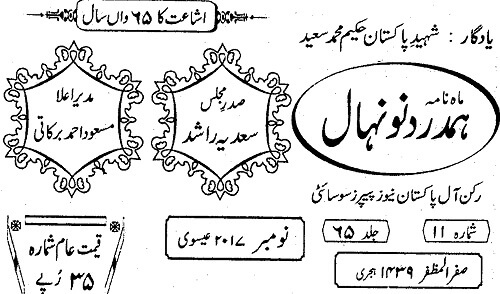 یادگار : شہیدِ پاکستان حکیم محمد سعید
اشاعت کا ۶۵ واں سال
ماہ نامہ
ہمدرد نونہال
صدرِ مجلس
سعدیہ راشد
مدیرِ اعلا
مسعود احمد برکاتی
رکن آل پاکستان نیوز پیپرز سوسائٹی
شمارہ ۱۱
جلد ۶۵
نومبر ۲۰۱۷ عیسوی
قیمت عام شمارہ
۳۵ رُپے
صفر المظفر ۱۴۳۹ ہجری